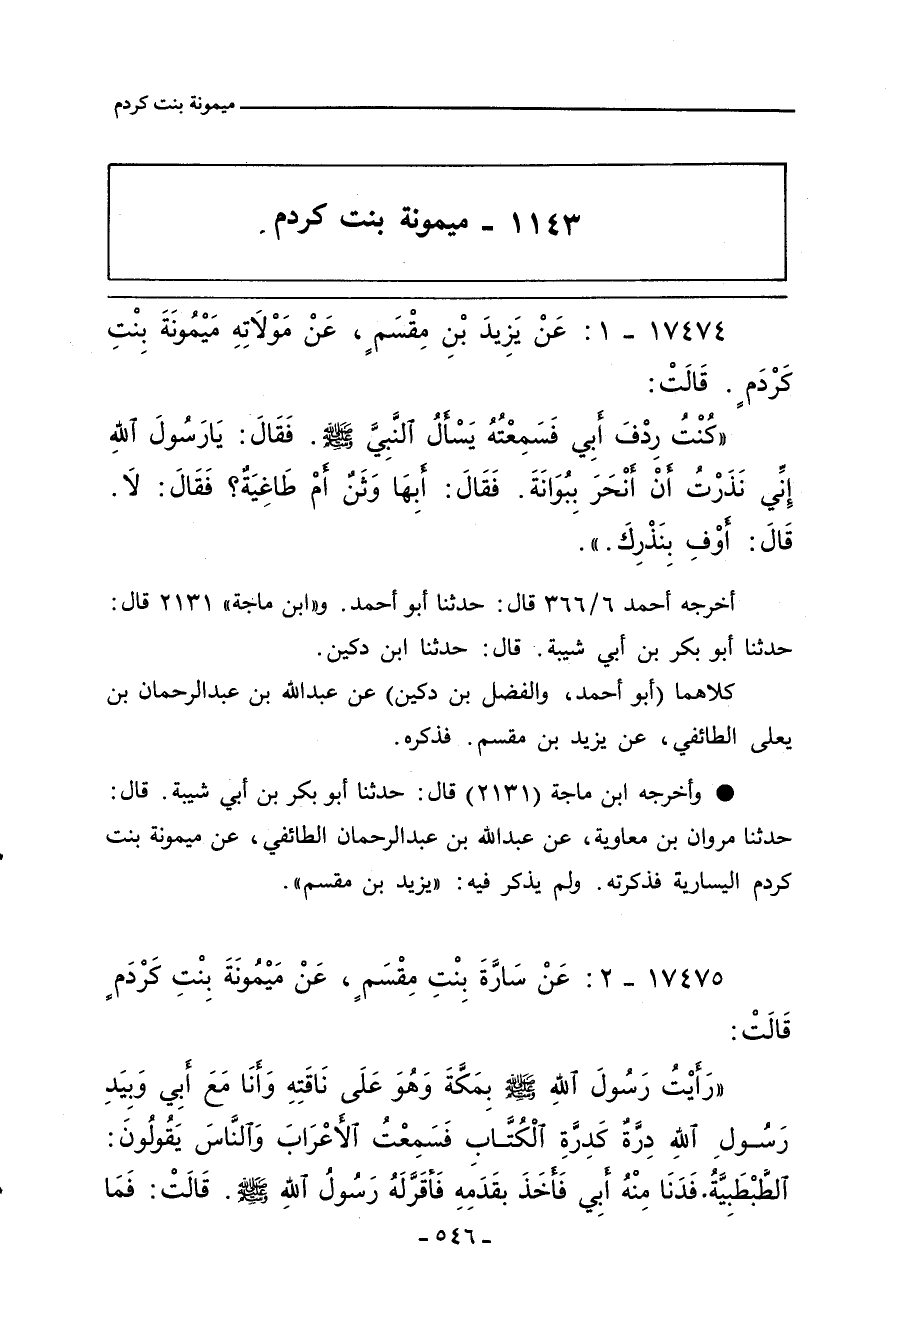 ميمونة بنت كردم
١١٤٣ ـ ميمونة بنت كردم .
١٧٤٧٤ ـ ١: عَنْ يَزِيدَ بْنِ مِقْسَمٍ ، عَنْ مَوْلَاتِهِ مَيْمُونَةَ بِنْتِ
كَرْدَمٍ . قَالَتْ:
«كُنْتُ رِدْفَ أَبِي فَسَمِعْتُهُ يَسْأَلُ ٱلنَّبِيَّ ﷺ. فَقَالَ: يَارَسُولَ ٱللهِ
إِنِّي نَذَرْتُ أَنْ أَنْحَرَ بِبُوَانَةَ. فَقَالَ: أَبِهَا وَثَنٌ أَمْ طَاغِيَةٌ؟ فَقَالَ: لَا.
قَالَ: أَوْفِ بِنَذْرِكَ.».
أخرجه أحمد ٣٦٦/٦ قال: حدثنا أبو أحمد. و«ابن ماجة» ٢١٣١ قال:
حدثنا أبو بكر بن أبي شيبة. قال: حدثنا ابن دكين.
كلاهما (أبو أحمد، والفضل بن دكين) عن عبدالله بن عبدالرحمان بن
يعلى الطائفي، عن يزيد بن مقسم. فذكره.
● وأخرجه ابن ماجة (٢١٣١) قال: حدثنا أبو بكر بن أبي شيبة. قال:
حدثنا مروان بن معاوية، عن عبدالله بن عبدالرحمان الطائفي، عن ميمونة بنت
كردم اليسارية فذكرته. ولم يذكر فيه: «يزيد بن مقسم».
١٧٤٧٥ ـ ٢: عَنْ سَارَّةَ بِنْتِ مِقْسَمٍ ، عَنْ مَيْمُونَةَ بِنْتِ كَرْدَمٍ
قَالَتْ:
«رَأَيْتُ رَسُولَ ٱللهِ ﷺ بِمَكَّةَ وَهُوَ عَلَى نَاقَتِهِ وَأَنَا مَعَ أَبِي وَبِيَدِ
رَسُولِ ٱللهِ دِرَّةٌ كَدِرَّةِ ٱلْكُتَّابِ فَسَمِعْتُ ٱلْأَعْرَابَ وَٱلنَّاسَ يَقُولُونَ:
ٱلطَّبْطَبِيَّةُ. فَدَنَا مِنْهُ أَبِي فَأَخَذَ بِقَدَمِهِ فَأَقَرَّلَهُ رَسُولُ ٱللهِ ﷺ. قَالَتْ: فَمَا
ـ ٥٤٦ ـ